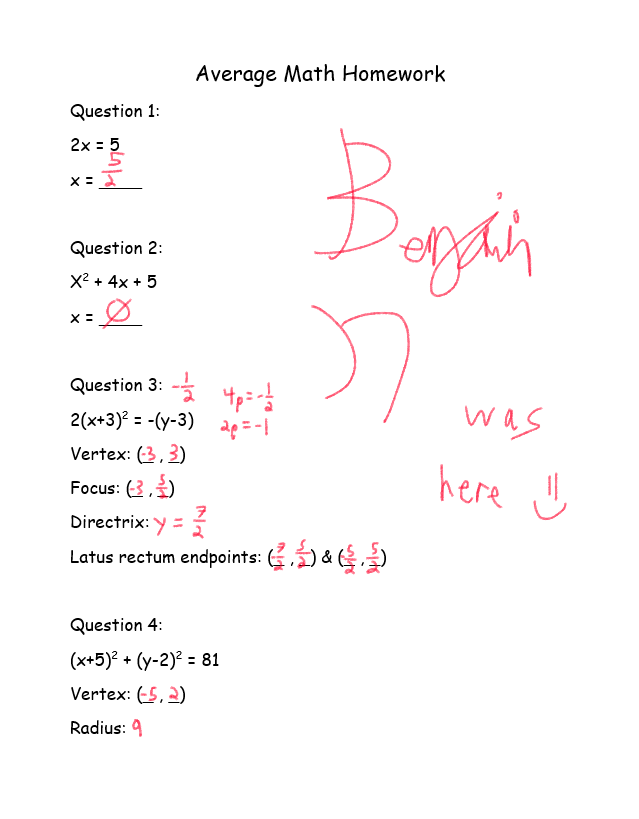 Average Math Homework
Question 1:
2x = 5
x = 5/2
Question 2:
X² + 4x + 5
x = ∅
Question 3: -1/2
4p = -1/2
2(x+3)² = -(y-3)
2p = -1
Vertex: (-3, 3)
Focus: (-3, 5/2)
Directrix: y = 7/2
Latus rectum endpoints: (7/2, 5/2) & (-5/2, 5/2)
Question 4:
(x+5)² + (y-2)² = 81
Vertex: (-5, 2)
Radius: 9
was
here